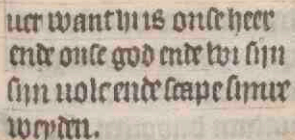 uer want hi is onse heer
ende onse god ende wi sijn
sijn uolc ende scape sinre
weyden.